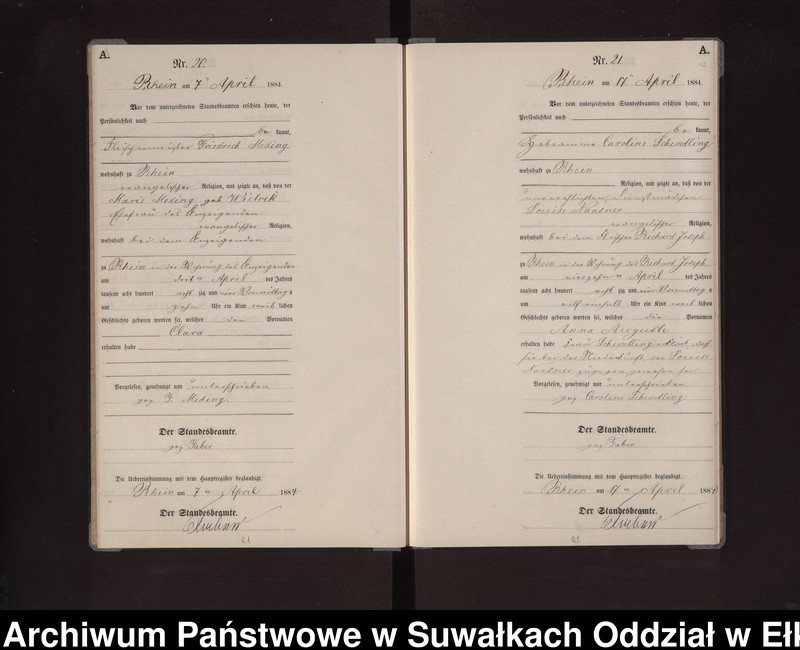 A.
Nr. 20
Rhein am 7ten April 1884.
Vor dem unterzeichneten Standesbeamten erschien heute, der
Persönlichkeit nach
be kannt,
Fleischermeister Friedrich Meding
wohnhaft zu Rhein
evangelischer Religion, und zeigte an, daß von der
Marie Meding geb
Ehefrau des Anzeigenden
evangelischer Religion,
wohnhaft bei dem Anzeigenden
zu Rhein in der Wohnung des Anzeigenden
am April des Jahres
tausend acht hundert acht zig und vier Vormittags
um zehn Uhr ein Kind weib lichen
Geschlechts geboren worden sei, welches den Vornamen
Clara
erhalten habe
Vorgelesen, genehmigt und unterschrieben
gez F. Meding.
Der Standesbeamte.
gez Faber
Die Uebereinstimmung mit dem Hauptregister beglaubigt.
Rhein am 7ten April 1884
Der Standesbeamte.
21
A.
Nr. 21
Rhein am April 1884.
Vor dem unterzeichneten Standesbeamten erschien heute, der
Persönlichkeit nach
be kannt,
Hebeamme Caroline Schwedling
wohnhaft zu Rhein
Religion, und zeigte an, daß von der
unverehelichten Dienstmädchen
Louise Naasner
evangelischer Religion,
wohnhaft bei dem Fleischer Richard Joseph
zu Rhein in der Wohnung des Richard Joseph
am vierzehnten April des Jahres
tausend acht hundert acht zig und vier Vormittags
um elf einhalb Uhr ein Kind weib lichen
Geschlechts geboren worden sei, welches die Vornamen
Anna Auguste
erhalten habe Frau Schwedling erklärt, daß
sie bei der Niederkunft der Louise
Naasner zugegen gewesen sei
Vorgelesen, genehmigt und unterschrieben
gez Caroline Schwedling
Der Standesbeamte.
gez Faber
Die Uebereinstimmung mit dem Hauptregister beglaubigt.
Rhein am April 1884
Der Standesbeamte.
Archiwum Państwowe w Suwałkach Oddział w Ełk